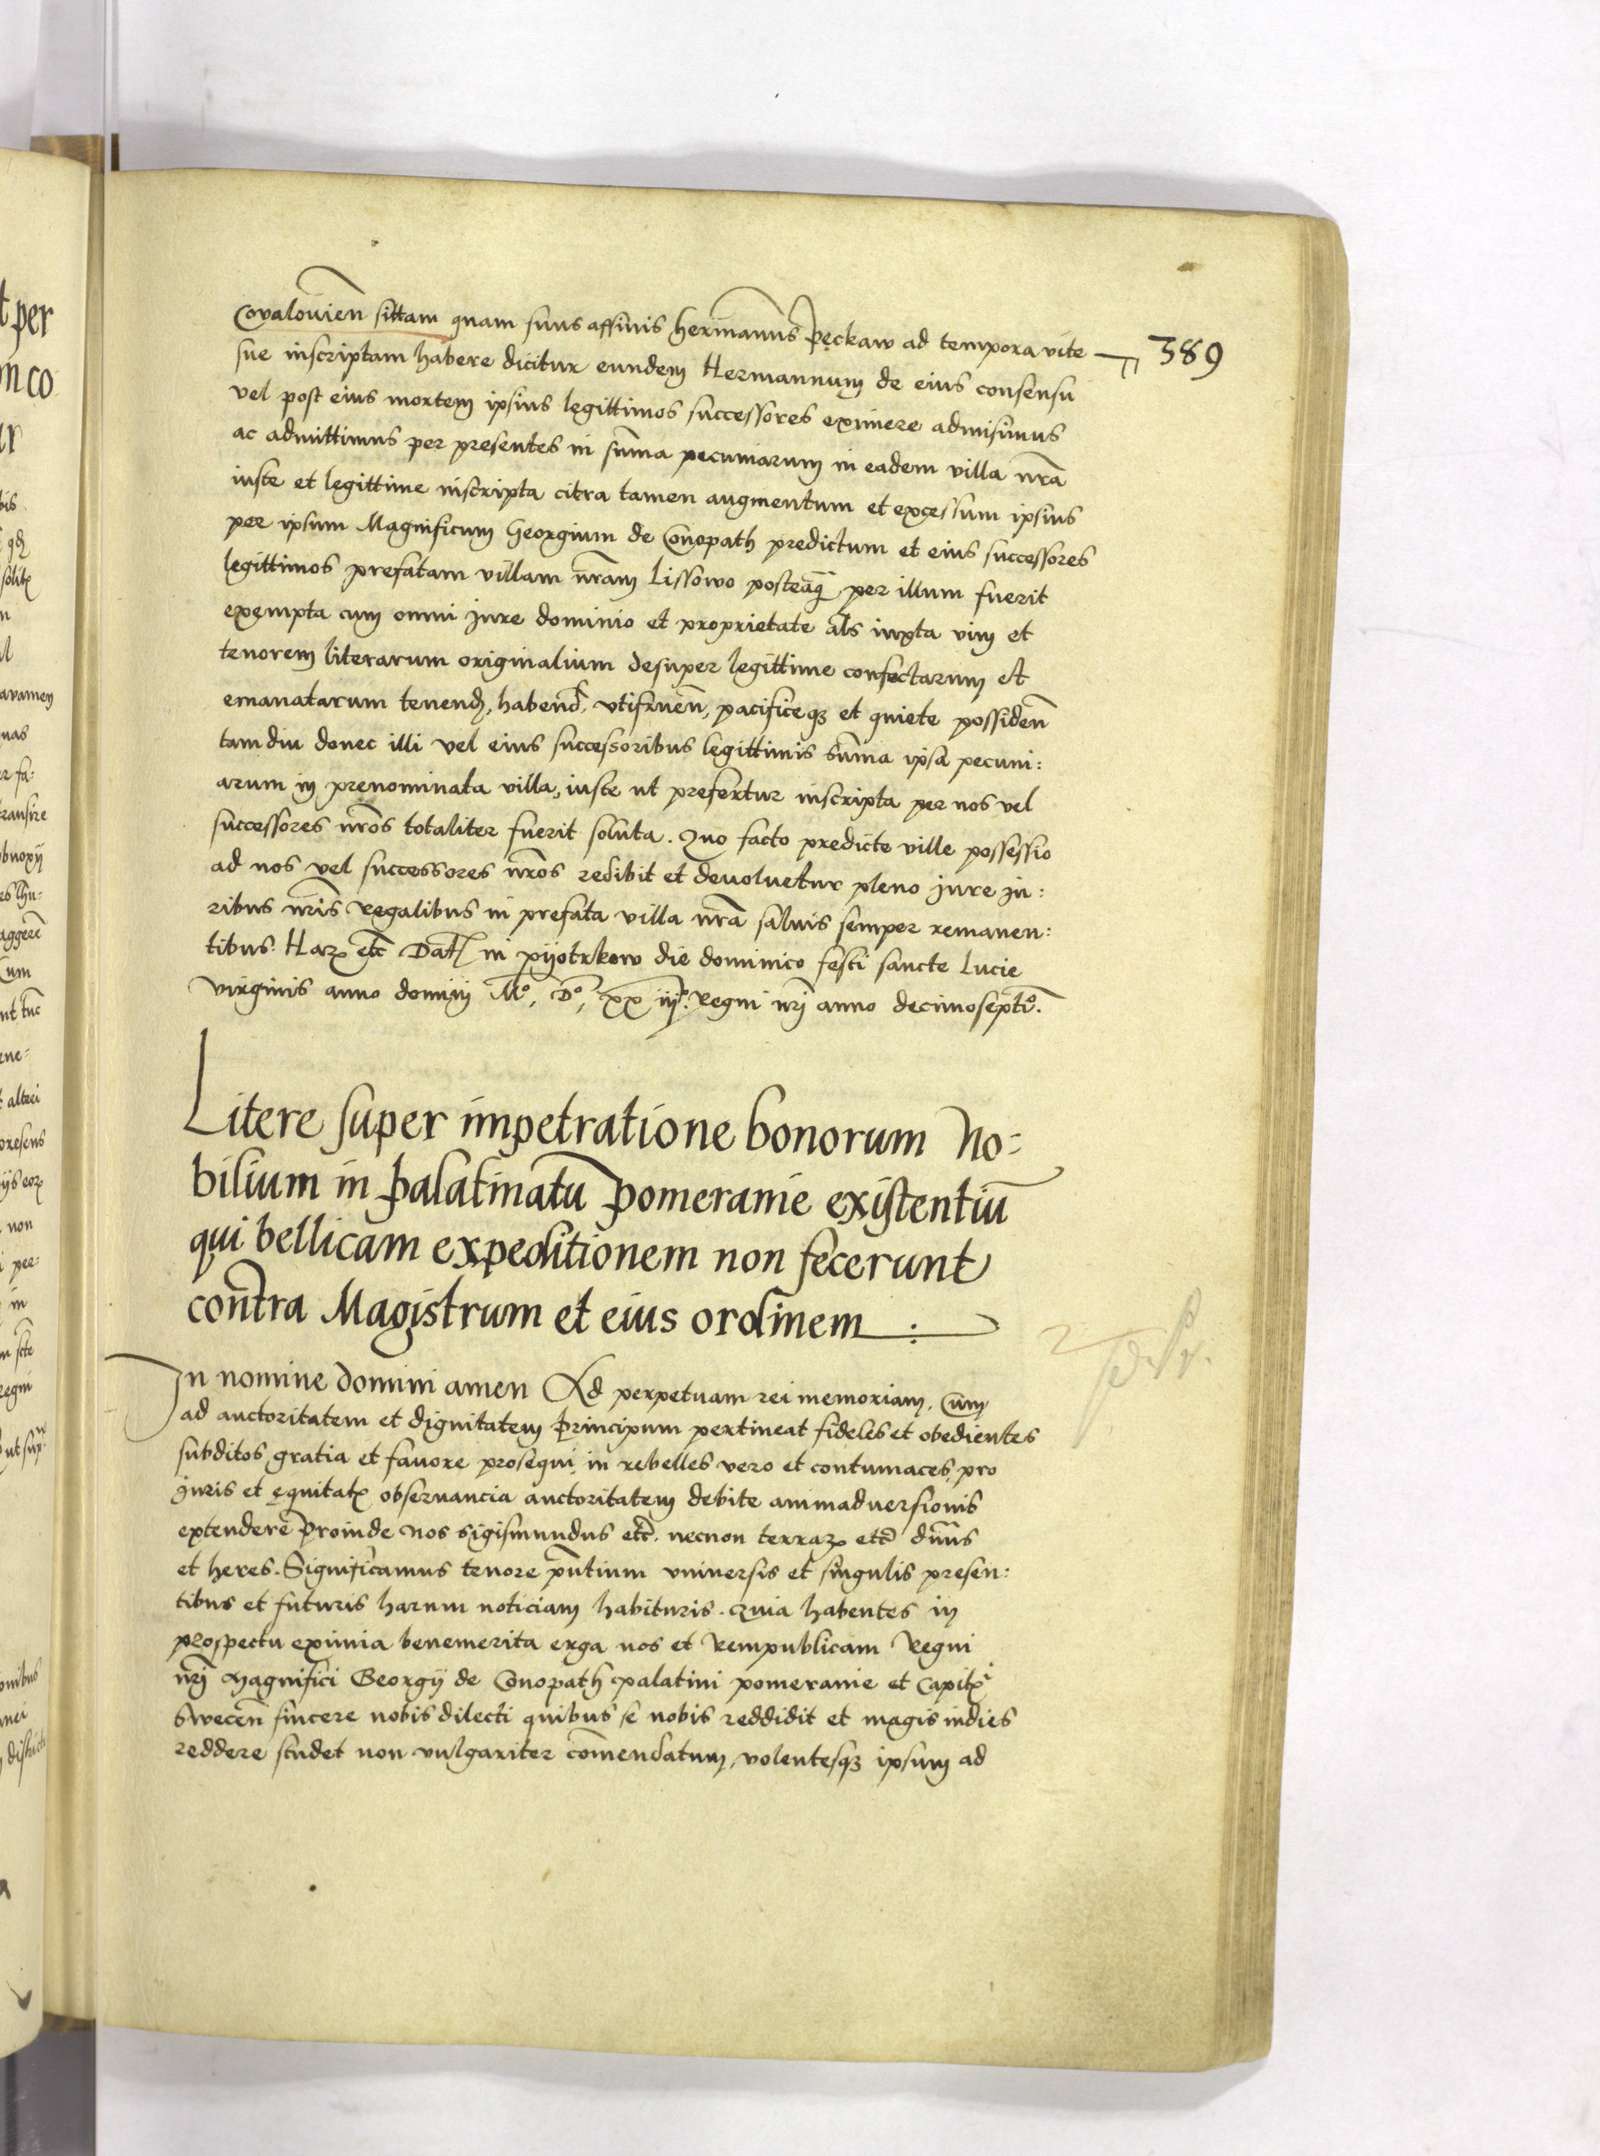 389
Covalouien sittam quam suus affinis hermanus Peckaw ad tempora vite
sue inscriptam habere dicitur eundem Hermannum de eius consensu
vel post eius mortem ipsius legittimos successores eximere admisimus
ac admittimus per presentes in suma pecuniarum in eadem villa nra
iuste et legittime inscripta citra tamen augmentum et excessum ipsius
per ipsum Magnificum Georgium de Conopath predictum et eius successores
legittimos prefatam villam nram Lissowo posteaq per illum fuerit
exempta cum omni Jure dominio et proprietate als iuxta vim et
tenorem literarum originalium desuper legittime confectarum et
emanatarum tenend, habend, vtifruen, pacificeq3 et quiete possiden
tam diu donec illi vel eius successoribus legittimis suma ipsa pecuni:
arum in prenominata villa, iuste ut prefertur inscripta per nos vel
successores nros totaliter fuerit soluta. Quo facto predicte ville possessio
ad nos vel successores nros redibit et deuoluetur pleno Jure Ju:
ribus nris regalibus in prefata villa nra saluis semper remanen:
tibus. Har etc Dat in pyotrkow die dominico festi sancte Lucie
virginis anno domini Mº, Dº, xx iij. Regni nrj anno decimoseptiº.
Litere super impetratione bonorum No:
bilium in palatinatu Pomeranie existentiu
qui bellicam expeditionem non fecerunt
contra Magistrum et eius ordinem
In nomine domini amen Ad perpetuam rei memoriam. Cum
ad auctoritatem et dignitatem Principum pertineat fideles et obedientes
subditos gratia et fauore prosequi, in rebelles vero et contumaces, pro
Juris et equitat obseruancia auctoritatem debite animaduersionis
extendere Proinde Nos Sigismundus etc. necnon terrar etc dnus
et heres. Significamus tenore pntium vniuersis et singulis presen:
tibus et futuris harum noticiam habituris. Quia habentes in
prospectu eximia benemerita erga nos et Rempublicam Regni
nrj Magnifici Georgij de Conopath palatini pomeranie et Capit
Swecen sincere nobis dilecti quibus se nobis reddidit et magis indies
reddere studet non vulgariter comendatum, volentesq3 ipsum ad